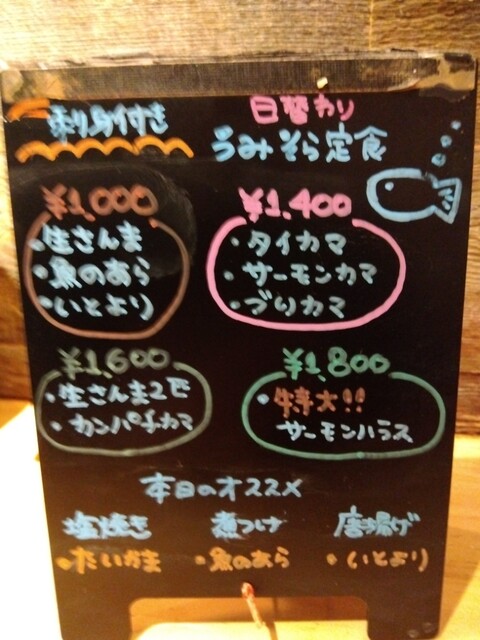 刺身付き
日替わり
うみそら定食
¥1,000
・生さんま
・魚のあら
・いとより
¥1,400
・タイカマ
・サーモンカマ
・ブリカマ
¥1,600
・生さんま2匹
・カンパチカマ
¥1,800
・特大!!
サーモンハラス
本日のオススメ
塩焼き
・たいかま
煮つけ
・魚のあら
唐揚げ
・いとより